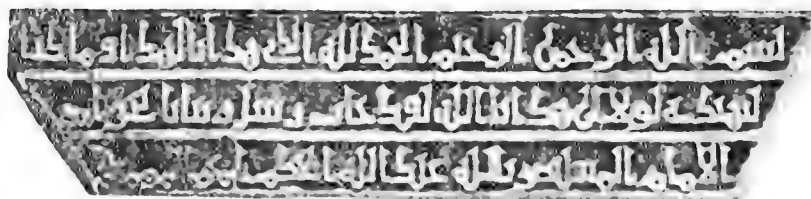 بسم الله الرحمن الرحيم الحمد لله الذي هدانا لهذا وما كنا
لنهتدي لولا ان هدانا الله لقد جات رسل ربنا بالحق
الامام المنصور بالله عبد الله